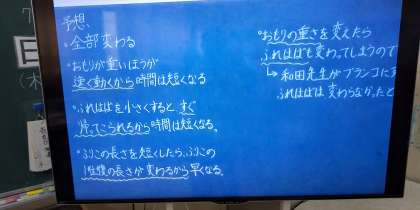 予想、
・全部変わる
・おもりが重いほうが
速く動くから時間は短くなる
・ふれはばを小さくすると、すぐ
帰ってこられるから時間は短くなる。
・ふりこの長さを短くしたら、ふりこの
1往復の長さが変わるから早くなる。
・おもりの重さを変えたら
ふれはばも変わってしまうので
→和田先生がブランコに
ふれはばは変わらなかったと